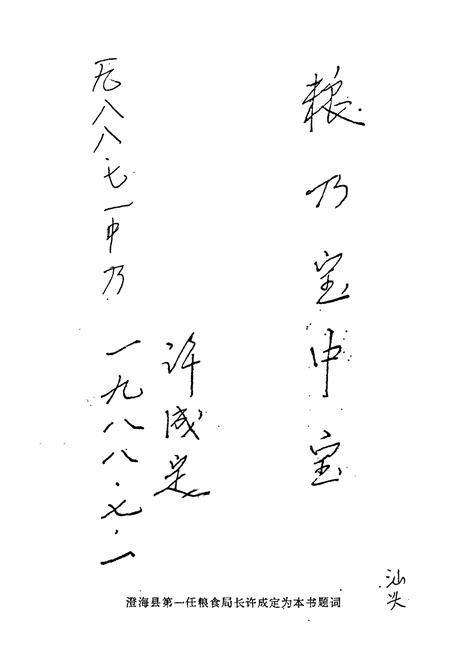 粮乃宝中宝
许成定
一九八八·七·一
一九八八·七·一中乃
汕头
澄海县第一任粮食局长许成定为本书题词